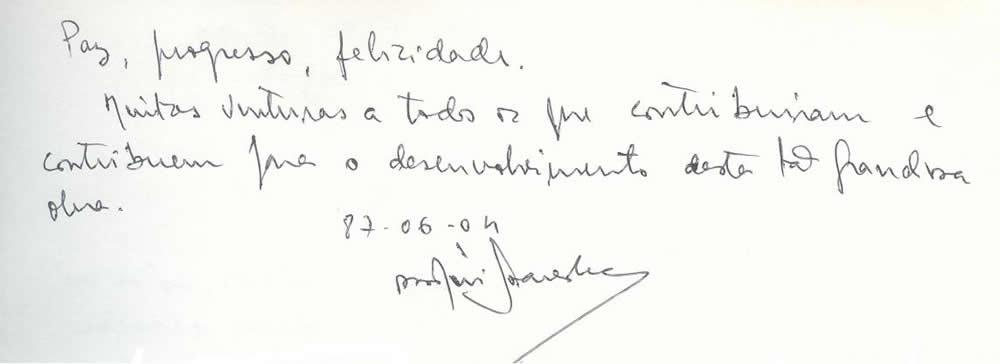 Paz, progresso, felicidade.
Muitas venturas a todos os que contribuiram e
contribuem para o desenvolvimento desta tão grandiosa
obra.
87-06-04